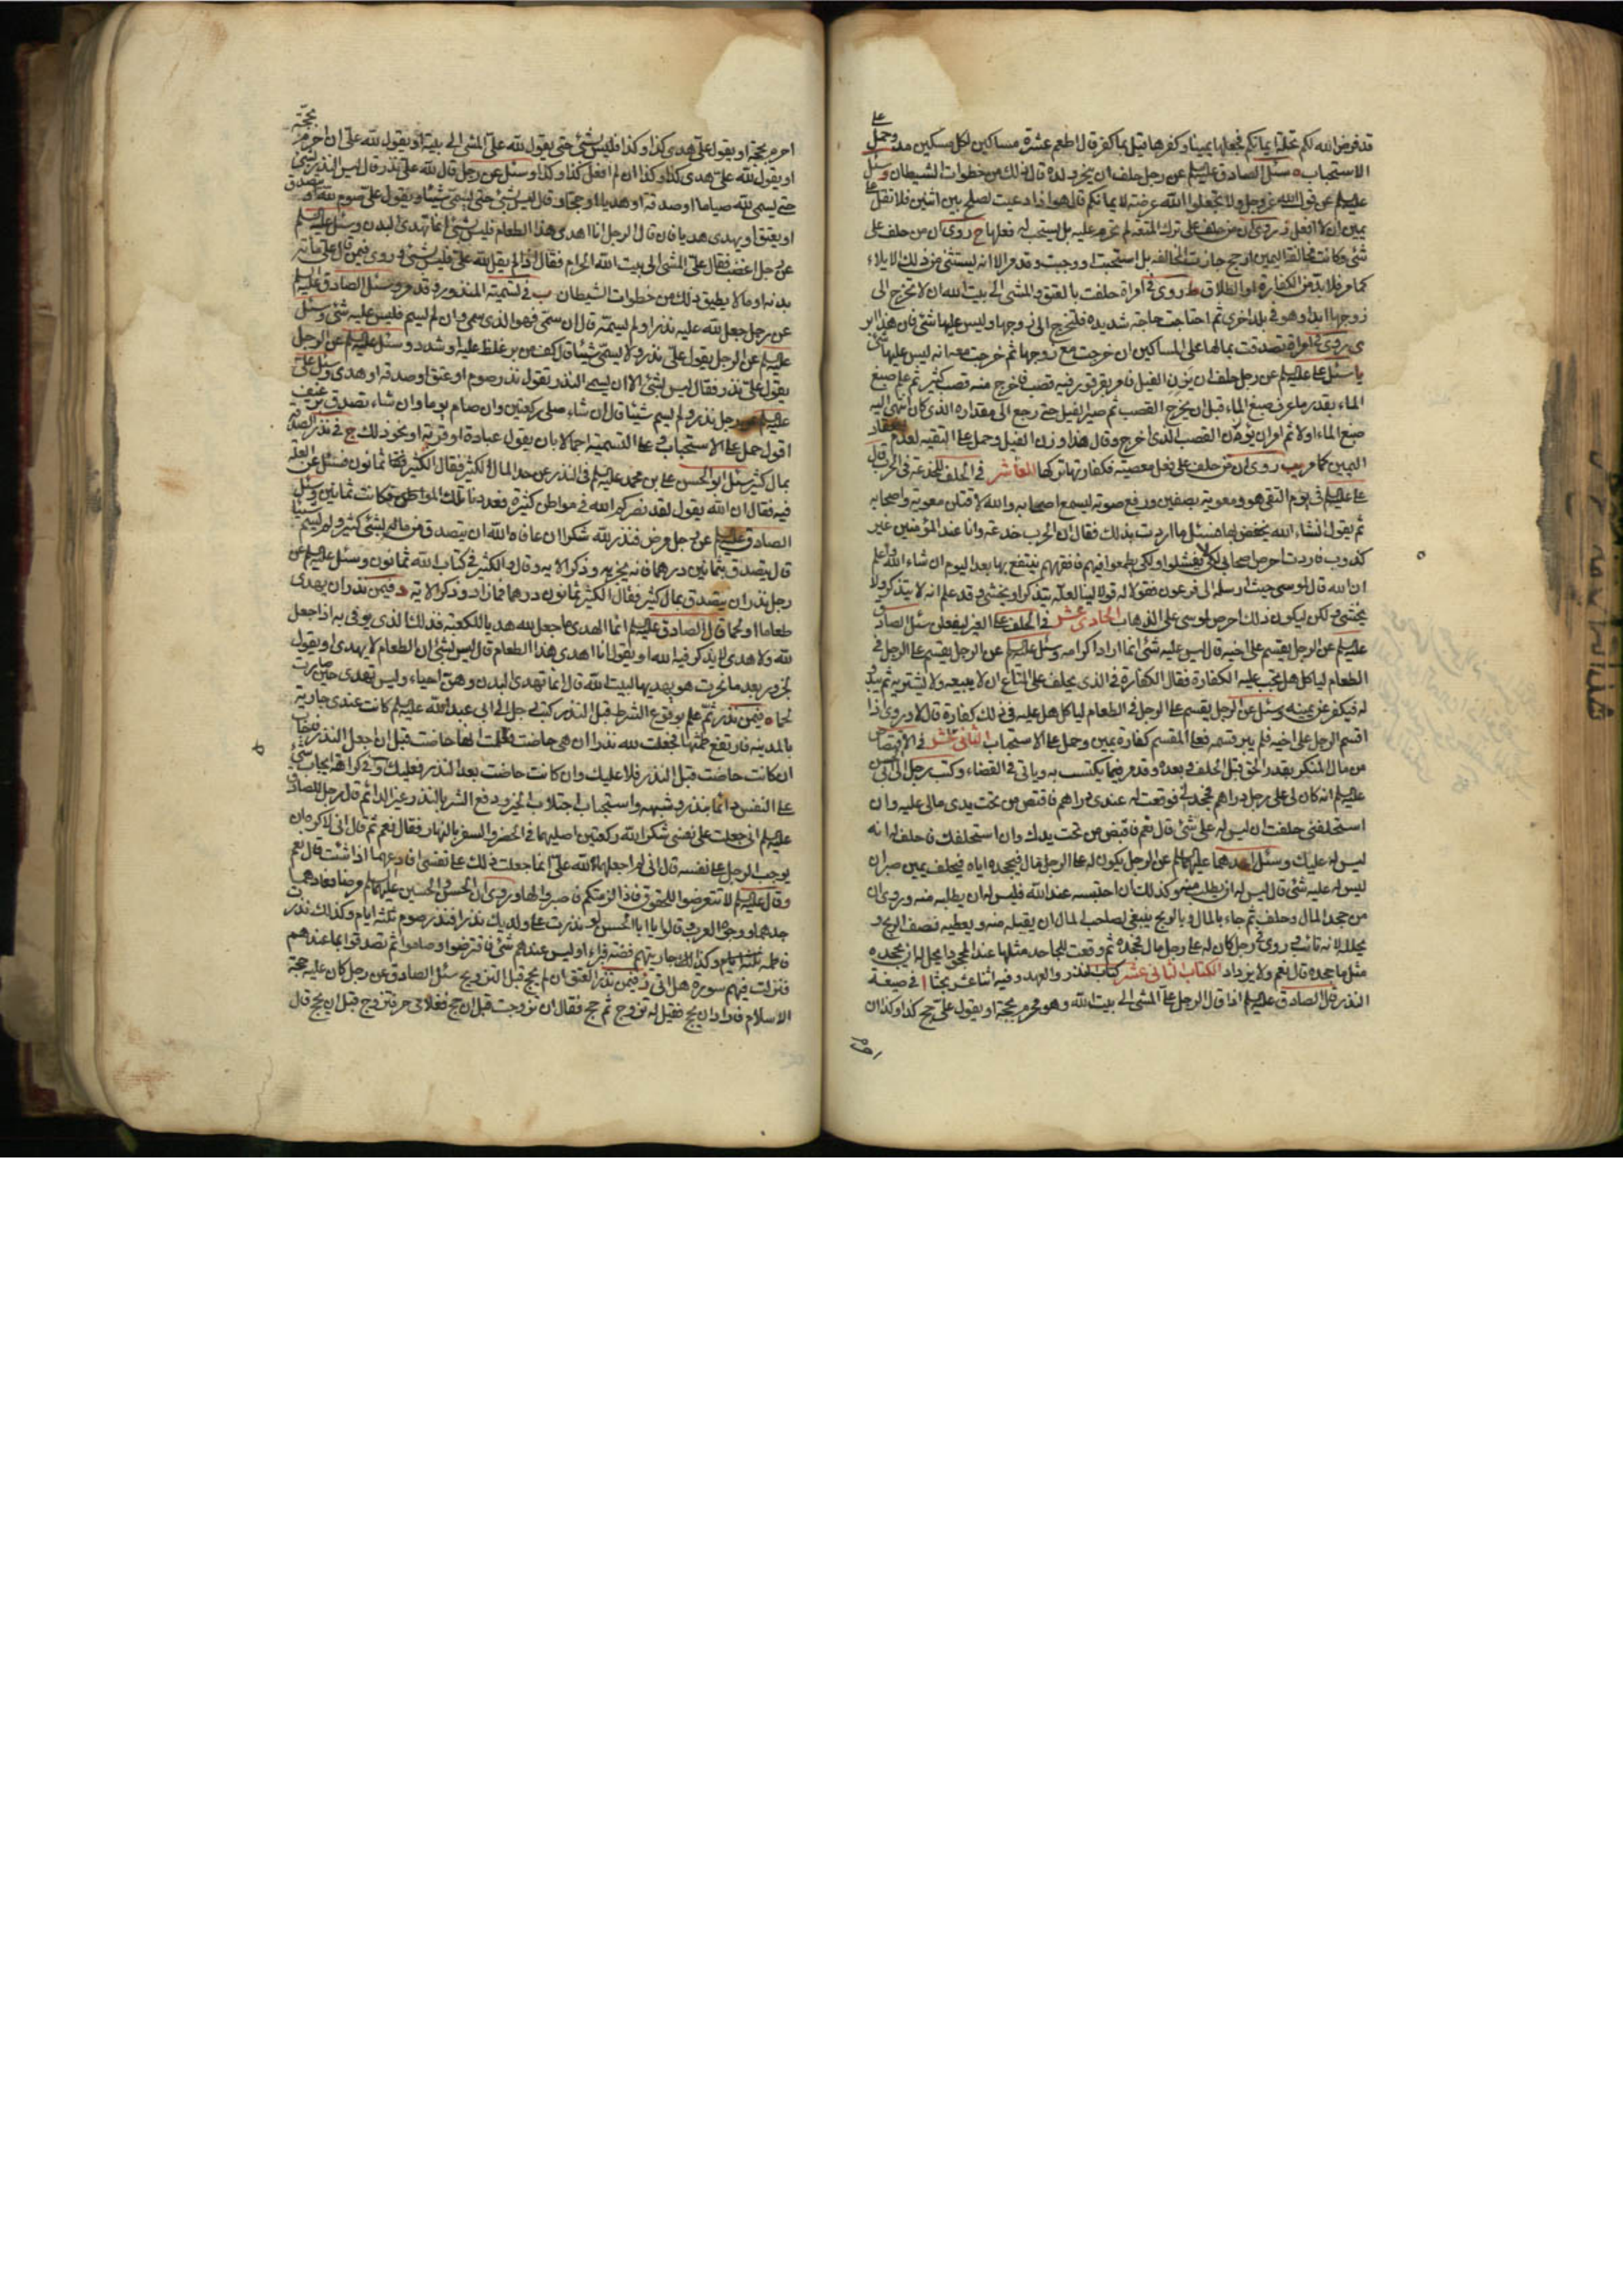 قد فرض الله لكم تحلة ايمانكم فجعلها يمينا وكفرها قيل بما كفر قال اطعم عشرة مساكين لكل مسكين مد وحمل على
الاستحباب ه سئل الصادق عليه السلم عن رجل حلف ان ينحر ولده قال ذلك من خطوات الشيطان وسئل
عليه السلم عن قول الله عز وجل ولا تجعلوا الله عرضة لايمانكم قال هو اذا دعيت لصلح بين اثنين فلا تقل على
يمين ان لا افعل روى ان من حلف على ترك المتعة لم تحرم عليه بل يستحب له فعلها ح روى ان من حلف على
شئ وكانت مخالفة اليمين ارجح جازت المخالفة بل استحبت او وجبت وقد مر الا انه يستثنى من ذلك الايلاء
كما مر فلا بد من الكفارة او الطلاق ط روى في امراة حلفت بالعتق والمشى الى بيت الله ان لا تخرج الى
زوجها ابدا وهو في بلد اخرى ثم احتاجت حاجة شديدة فلتخرج الى زوجها وليس عليها شئ فان هذا ابر
ى روى في امراة تصدقت بمالها على المساكين ان خرجت مع زوجها ثم خرجت معه انه ليس عليها شئ
يا سئل على عليه السلم عن رجل حلف ان يزن الفيل فامر بقرقور فيه قصب فاخرج منه قصب كثير ثم علم صبغ
الماء بقدر ما عرف صبغ الماء قبل ان يخرج القصب ثم صير الفيل حتى رجع الى مقداره الذى كان انتهى اليه
صبغ الماء اولا ثم امر ان يوزن القصب الذى اخرج وقال هذا وزن الفيل وحمل على التقية لعدم انعقاد
اليمين كما مر يب روى ان من حلف على فعل معصية فكفارتها تركها العاشر في الحلف للخدعة في الحرب قال
على عليه السلم في يوم التقى هو ومعوية بصفين ورفع صوته ليسمع اصحابه والله لاقتلن معوية واصحابه
ثم يقول انشاء الله يخفض بها فسئل ما اردت بذلك فقال ان الحرب خدعة وانا عند المؤمنين غير
كذوب فاردت احرض اصحابي لكى لا يفشلوا ولكى يطمعوا فيهم فافقههم ينتفع بها بعد اليوم ان شاء الله واعلم
ان الله قال لموسى حيث ارسله الى فرعون فقولا له قولا لينا لعله يتذكر او يخشى وقد علم انه لا يتذكر ولا
يخشى ولكن ليكون ذلك احرص لموسى على الذهاب الحادى عشر في الحلف على الغير ليفعلن سئل الصادق
عليه السلم عن الرجل يقسم على اخيه قال ليس عليه شئ انما اراد اكرامه وسئل عليه السلم عن الرجل يقسم على الرجل في
الطعام لياكل هل يجب عليه الكفارة فقال الكفارة في الذى يحلف على المتاع ان لا يبيعه ولا يشتريه ثم يبدو
له فيكفر عن يمينه وسئل عن الرجل يقسم على الرجل في الطعام لياكل هل عليه في ذلك كفارة قال لا وروى اذا
اقسم الرجل على اخيه فلم يبر قسمه فعلى المقسم كفارة يمين وحمل على الاستحباب الثانى عشر في الاقتصاص
من مال المنكر بقدر الحق قبل الحلف وبعده وقد مر فيما يكتسب به وياتى في القضاء وكتب رجل الى ابى الحسن
عليه السلم انه كان لى على رجل دراهم فجحدنى فوقعت له عندى دراهم فاقتص من تحت يدى مالى عليه وان
استحلفنى حلفت ان ليس له على شئ قال نعم فاقبض من تحت يدك وان استحلفك فاحلف له انه
ليس له عليك وسئل احدهما عليهما السلم عن الرجل يكون له على الرجل مال فيجحده اياه فيحلف يمين صبر ان
ليس له عليه شئ قال ليس له ان يطلب منه وكذلك ان احتسبه عند الله فليس له ان يطلبه منه وروى ان
من جحد المال وحلف ثم جاء بالمال وبالربح ينبغى لصاحب المال ان يقبله منه ويعطيه نصف الربح و
يحلله لانه تائب وروى في رجل كان له على رجل مال فجحده ثم وقعت للجاحد مثلها عند المجحود ايحل له ان يجحده
مثل ما جحده قال نعم ولا يزداد الكتاب الثانى عشر كتاب النذر والعهد وفيه اثنا عشر بحثا ا في صيغة
النذر قال الصادق عليه السلم اذا قال الرجل على المشى الى بيت الله وهو محرم بحجة او يقول على حج كذا وكذا ان
احرم
احرم بحجة او يقول على هدى كذا وكذا فليس بشئ حتى يقول لله على المشى الى بيته او يقول لله على ان احرم بحجة
او يقول لله على هدى كذا وكذا ان لم افعل كذا وكذا وسئل عن رجل قال لله على نذر قال ليس النذر بشئ
حتى يسمى لله صياما او صدقة او هديا او حجا وقال ليس بشئ حتى يسمى شيئا ويقول على صوم لله او يتصدق
او يعتق او يهدى هديا فان قال الرجل انا اهدى هذا الطعام فليس بشئ انما تهدى البدن وسئل عليه السلم
عن رجل اغضب فقال على المشى الى بيت الله الحرام فقال اذا لم يقل لله على فليس بشئ وروى فيمن قال على مائة
بدنة او ما لا يطيق ذلك من خطوات الشيطان ب في تسمية المنذور وقد مر وسئل الصادق عليه السلم
عن رجل جعل لله عليه نذرا ولم يسمه قال ان سمى فهو الذى سمى وان لم يسم فليس عليه شئ وسئل
عليه السلم عن الرجل يقول على نذر ولا يسمى شيئا قال كف من بر غلظ عليه او شدد وسئل عليه السلم عن الرجل
يقول على نذر فقال ليس بشئ الا ان يسمى النذر يقول نذر صوم او عتق او صدقة او هدى وسئل على
عليه السلم عن رجل نذر ولم يسم شيئا قال ان شاء صلى ركعتين وان صام يوما وان شاء تصدق برغيف
اقول حمل على الاستحباب وعلى التسمية اجمالا بان يقول عبادة او قربة او نحو ذلك ج في نذر الصدقة
بمال كثير سئل ابو الحسن على بن محمد عليه السلم في النذر عن حد المال الكثير فقال الكثير ثمانون فسئل عن العلة
فيه فقال ان الله يقول لقد نصركم الله في مواطن كثيرة فعددنا تلك المواطن فكانت ثمانين وسئل
الصادق عليه السلم عن رجل مرض فنذر لله شكرا ان عافاه الله ان يتصدق من ماله بشئ كثير ولم يسم شيئا
قال يتصدق بثمانين درهما فانه يجزيه وذكر الاية وقال الكثير في كتاب الله ثمانون وسئل عليه السلم عن
رجل نذر ان يتصدق بمال كثير فقال الكثير ثمانون درهما فما زاد وذكر الاية د فيمن نذر ان يهدى
طعاما او لحما قال الصادق عليه السلم انما الهدى ما جعل لله هديا للكعبة فذلك الذى يوفى به اذا جعل
لله ولا هدى لا يذكر فيه الله او يقول انا اهدى هذا الطعام قال ليس بشئ ان الطعام لا يهدى او يقول
لجزور بعد ما نحرت هو يهديها لبيت الله قال انما تهدى البدن وهن احياء وليس تهدى حين صارت
لحما ه فيمن نذر ثم علم بوقوع الشرط قبل النذر كتب رجل الى ابى عبد الله عليه السلم كانت عندى جارية
بالمدينة فارتفع طمثها فجعلت لله نذرا ان هى حاضت فعلمت انها حاضت قبل ان اجعل النذر فاجاب
ان كانت حاضت قبل النذر فلا عليك وان كانت حاضت بعد النذر فعليك و في كراهة ايجاب شئ
على النفس دائما بنذر وشبهه واستحباب اجتلاب الخير ودفع الشر بالنذر غير الدائم قال رجل للصادق
عليه السلم انى جعلت على نفسى شكرا لله ركعتين اصليهما في الحضر والسفر بالنهار فقال نعم ثم قال انى لاكره ان
يوجب الرجل على نفسه قال انى لم اجعلها لله على انما جعلت ذلك على نفسى افادعهما اذا شئت قال نعم
وقال عليه السلم لا تتعرضوا للحقوق فاذا لزمتكم فاصبروا لها وروى ان الحسن والحسين عليهما السلم مرضا فعادهما
جدهما ووجوه العرب وقالوا يا ابا الحسن لو نذرت على ولديك نذرا فنذر صوم ثلثة ايام وكذلك نذرت
فاطمة عليها السلم وكذلك جاريتهم فضة فبراء اوليس عندهم شئ فاقترضوا وصاموا ثم تصدقوا بما عندهم
فنزلت فيهم سورة هل اتى ز فيمن نذر العتق ان لم يحج قبل التزويج سئل الصادق عن رجل كان عليه حجة
الاسلام فاراد ان يحج فقيل له تزوج ثم حج فقال ان تزوجت قبل ان احج فغلامى حر فتزوج قبل ان يحج قال